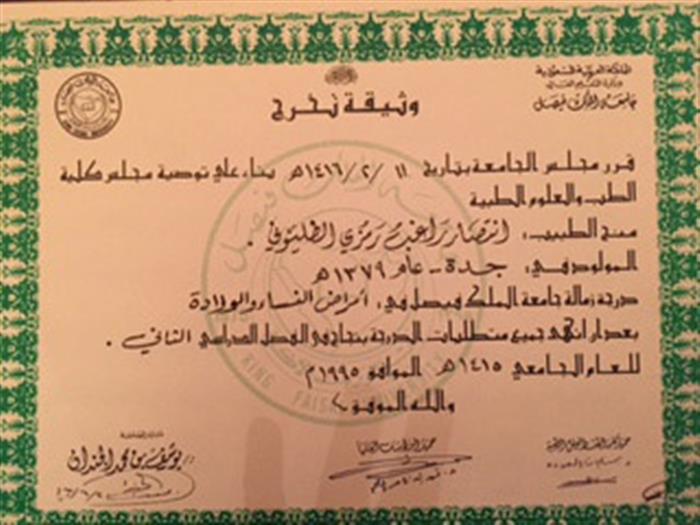 المملكة العربية السعودية
وزارة التعليم العالي
جامعة الملك فيصل
وثيقة تخرج
قرر مجلس الجامعة بتاريخ ١١ /٢ /١٤١٦هـ بناء علي توصية مجلس كلية
الطب والعلوم الطبية
منح الطبيب: انتصار راغب رمزي الطليوفي .
المولود في: جدة - عام ١٣٧٩هـ
درجة زمالة جامعة الملك فيصل في: أمراض النساء والولادة
بعد أن انهى جميع متطلبات الدرجة بنجاح في الفصل الدراسي الثاني .
للعام الجامعي ١٤١٥هـ الموافق ١٩٩٥م
والله الموفق
عميد الدراسات العليا
يوسف بن محمد الجندان
KING FAISAL